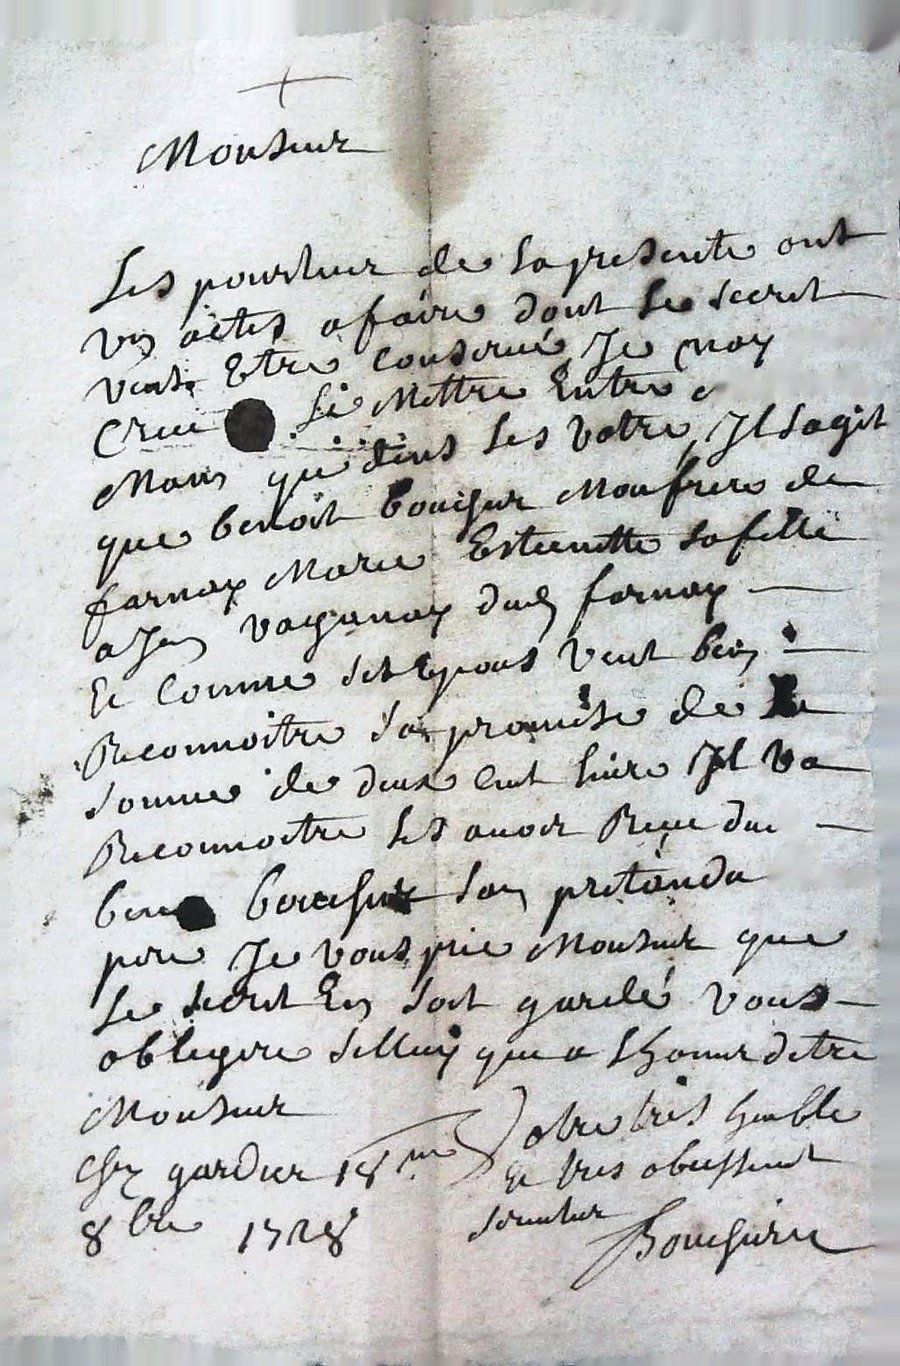 Monsieur
Les pourteur de la presente ont
un actes a faire dont le secret
veut Etre Conserué Je nay
Creu le Mettre Entre
Mains que dens les votre, Il sagit
que benoit bouchur Mon frere de
farnay Marie Estiennette sa fille
a Jean vaganay dud farnay
Et Comme set Epous veut bien
Reconnoitre sa promise de la
somme de deux cent livre Il va
Reconnoitre les auoir Receu dud
ben bouchur son pretendu
pere Je vous prie Monsieur que
le secret En soit gardé vous
obligere selluy que a lhonur detre
Monsieur
Chez gardier 18me Votre tres humble
Et tres obeissent
8bre 1728 seruiteur